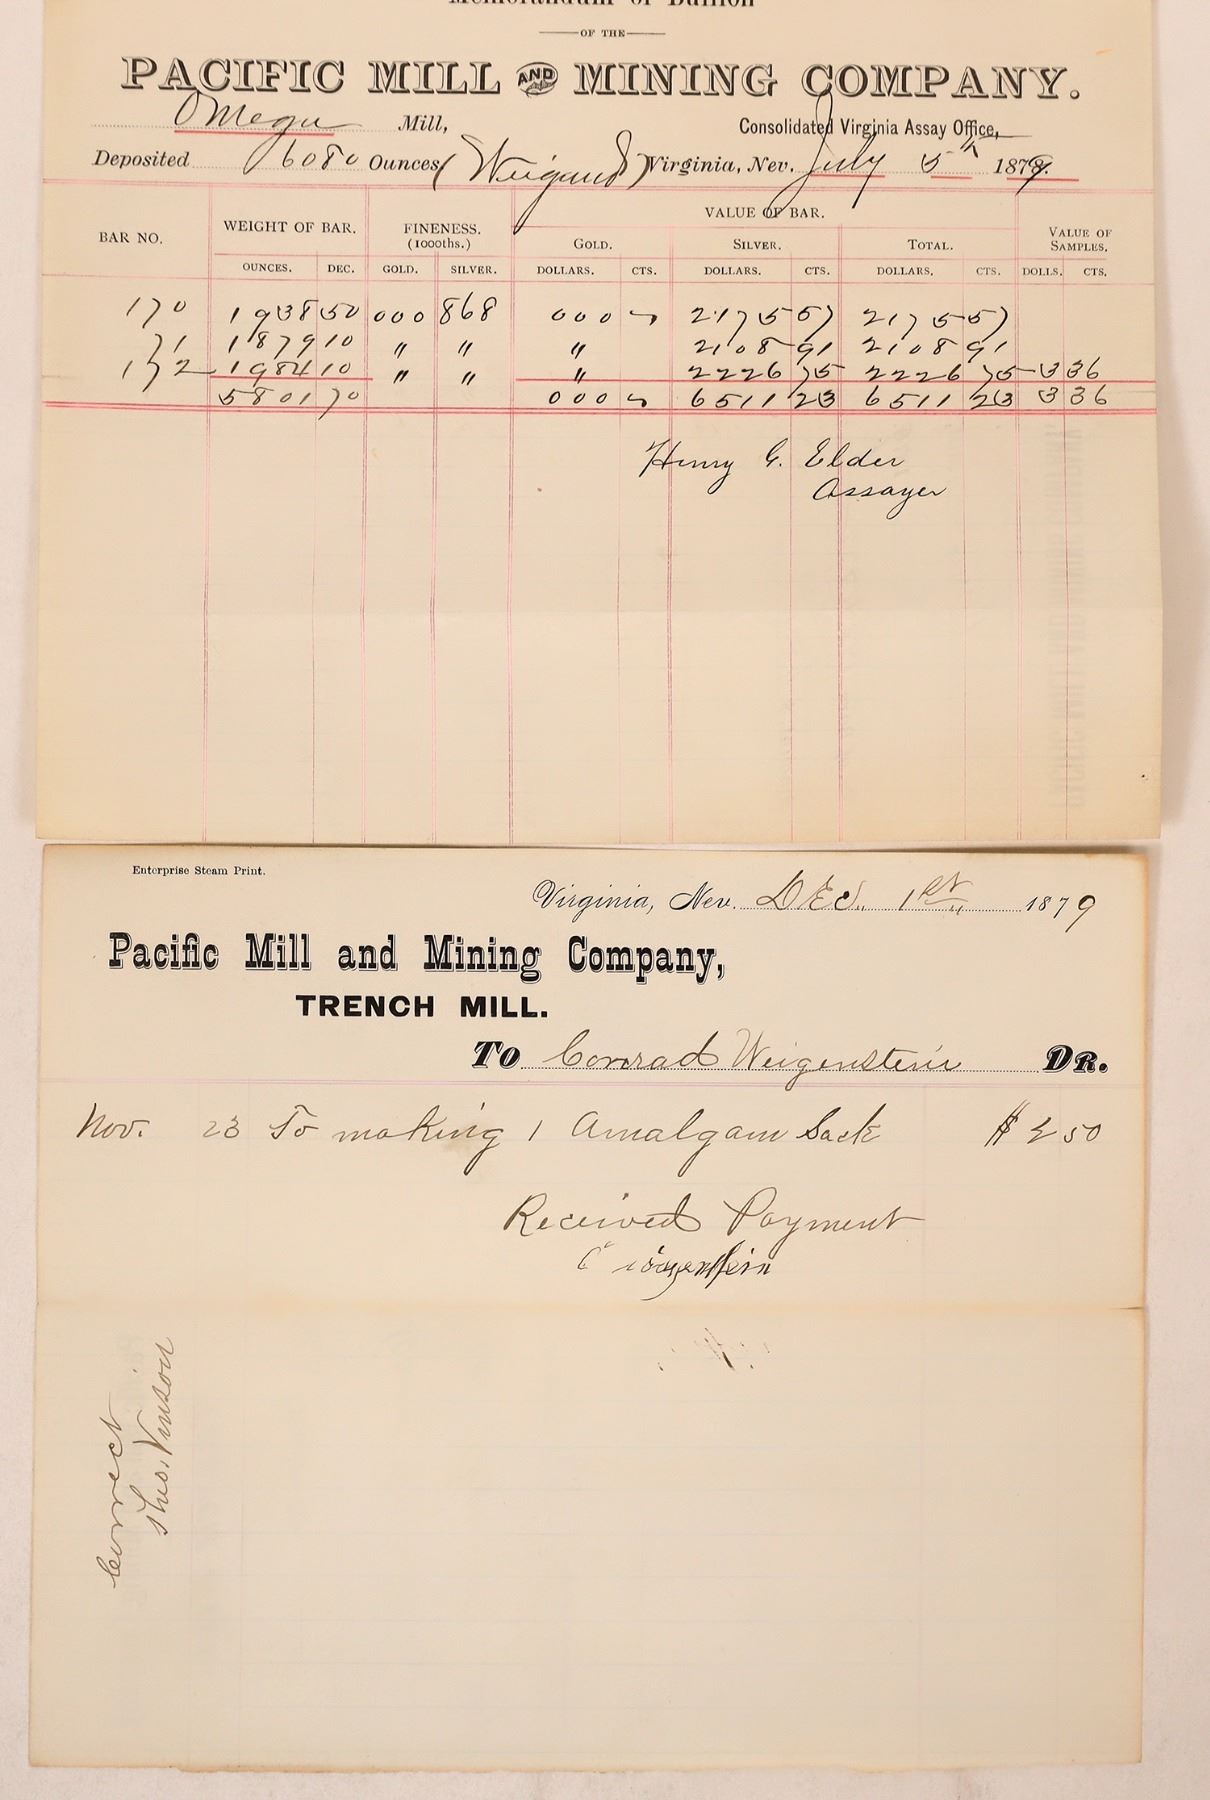 Memorandum of Bullion
OF THE
PACIFIC MILL AND MINING COMPANY.
Omega Mill, Consolidated Virginia Assay Office,
Deposited 6080 Ounces (Weigand) Virginia, Nev. July 5th 1879.
BAR NO. WEIGHT OF BAR. FINENESS. (1000ths.) VALUE OF BAR. VALUE OF SAMPLES.
GOLD. SILVER. TOTAL.
OUNCES. DEC. GOLD. SILVER. DOLLARS. CTS. DOLLARS. CTS. DOLLARS. CTS. DOLLS. CTS.
170 1938 50 000 868 000 2175 57 2175 57
71 1879 10 " " " 2108 91 2108 91
172 1984 10 " " " 2226 75 2226 75 3 36
5801 70 000 6511 23 6511 23 3 36
Henry G. Elder
Assayer
Enterprise Steam Print.
Virginia, Nev. DEC. 1st 1879
Pacific Mill and Mining Company,
TRENCH MILL.
To Conrad Weigenstein DR.
Nov. 23 To making 1 Amalgam Sack $ 2 50
Received Payment
C Wiegenstein
Correct
Theo. Vinson